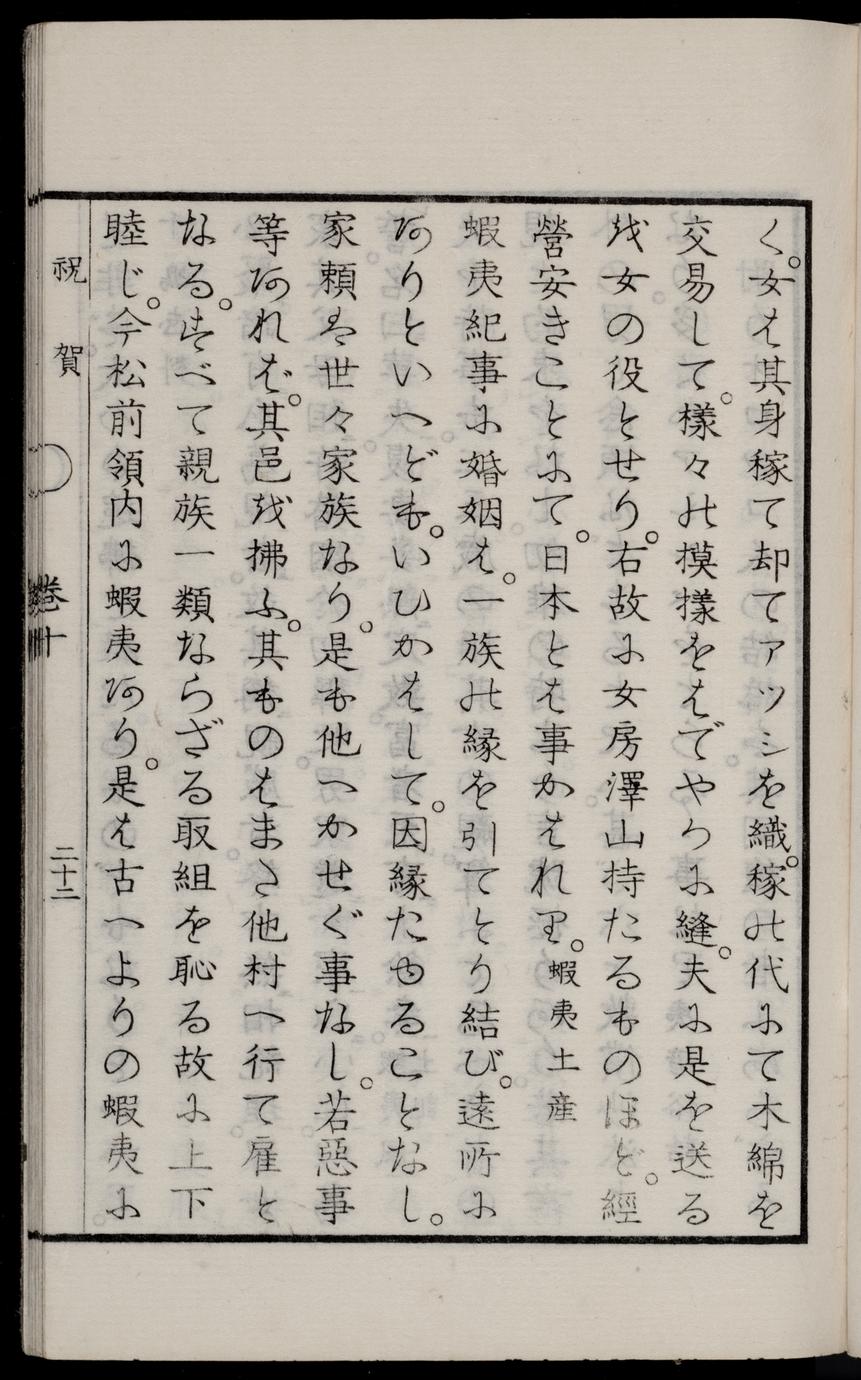 く。女は其身稼て却てアツシを織。稼の代にて木綿を
交易して。樣々の摸樣をはでやうに縫。夫に是を送る
を女の役とせり。右故に女房澤山持たるものほど。經
營安きことにて。日本とは事かはれり。蝦夷土産
蝦夷紀事に婚姻は。一族の縁を引てとり結び。遠所に
ありといへども。いひかはして。因縁たゆることなし。
家頼は世々家族なり。是も他へかせぐ事なし。若惡事
等あれば。其邑を拂ふ。其ものはまた他村へ行て雇と
なる。すべて親族一類ならざる取組を恥る故に上下
睦じ。今松前領内に蝦夷あり。是は古へよりの蝦夷に
祝賀 卷十 二十二